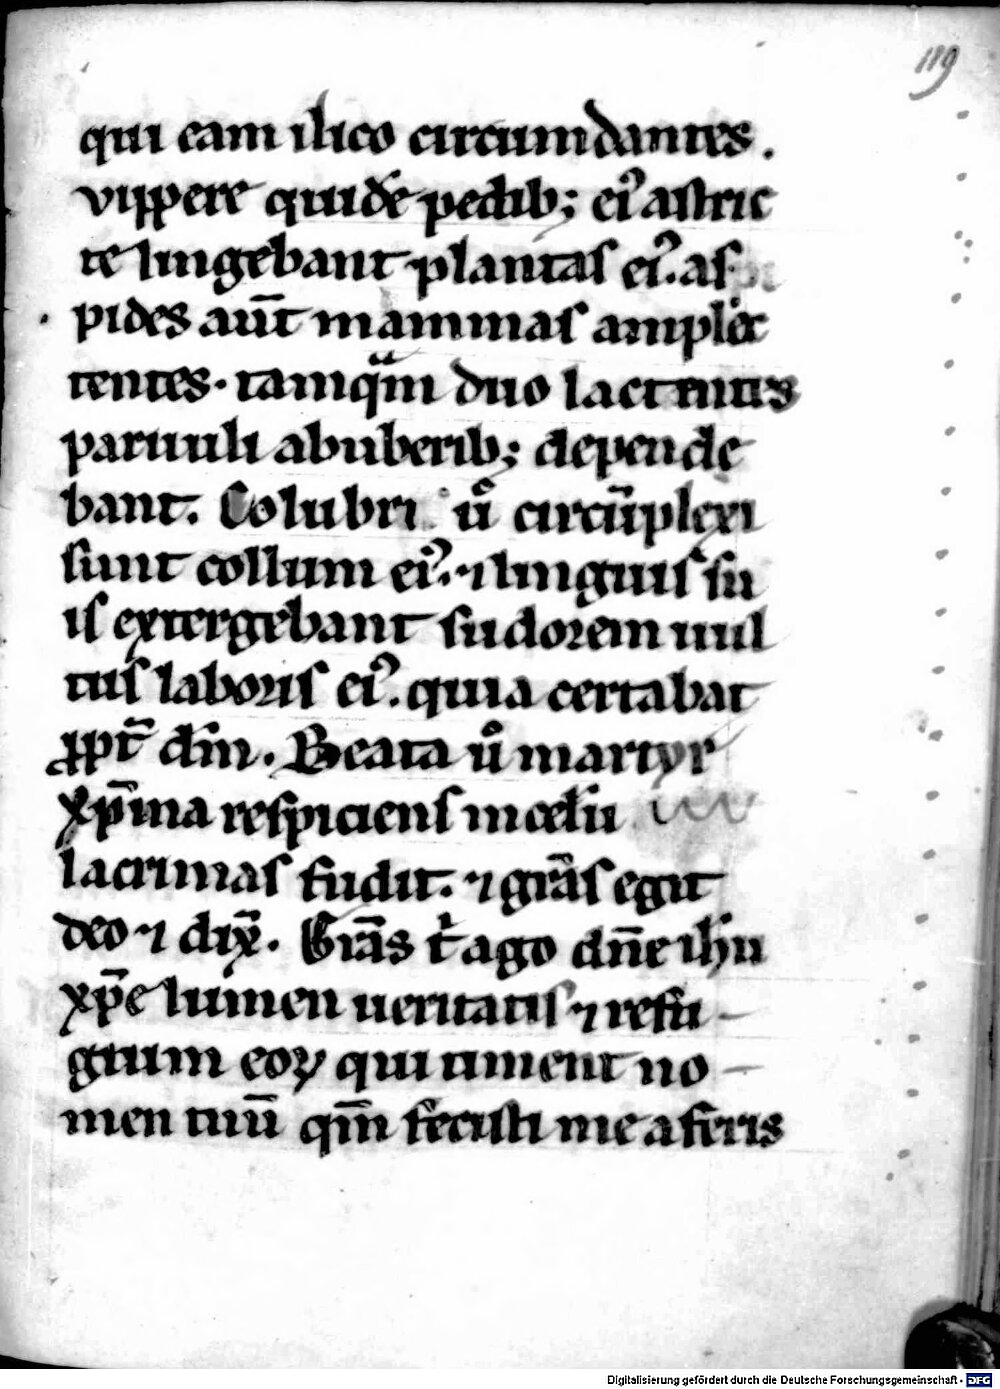 119
qui eam ilico circumdantes.
vippere quidē pedib; ei᷒ astric
te lingebant plantas ei᷒. as
pides aūt mammas amplec
tentes. tamqͣm duo lactentes
paruuli abuberib; depende
bant. Colubri u᷒ circūplexi
sunt collum ei᷒. ⁊ linguis su
is extergebant sudorem uul
tus laboris ei᷒. quia certabat
ꝓpt̄ dm̄. Beata u᷒ martyr
xp̄ina respiciens in celū
lacrimas fudit. ⁊ grās egit
deo ⁊ dix̄. Grās tⁱ ago dn̄e ihū
xp̄e lumen ueritatis ⁊ refu
gium eoꝝ qui timent no
men tuū qm̄ fecisti me a feris
Digitalisierung gefördert durch die Deutsche Forschungsgemeinschaft - DFG